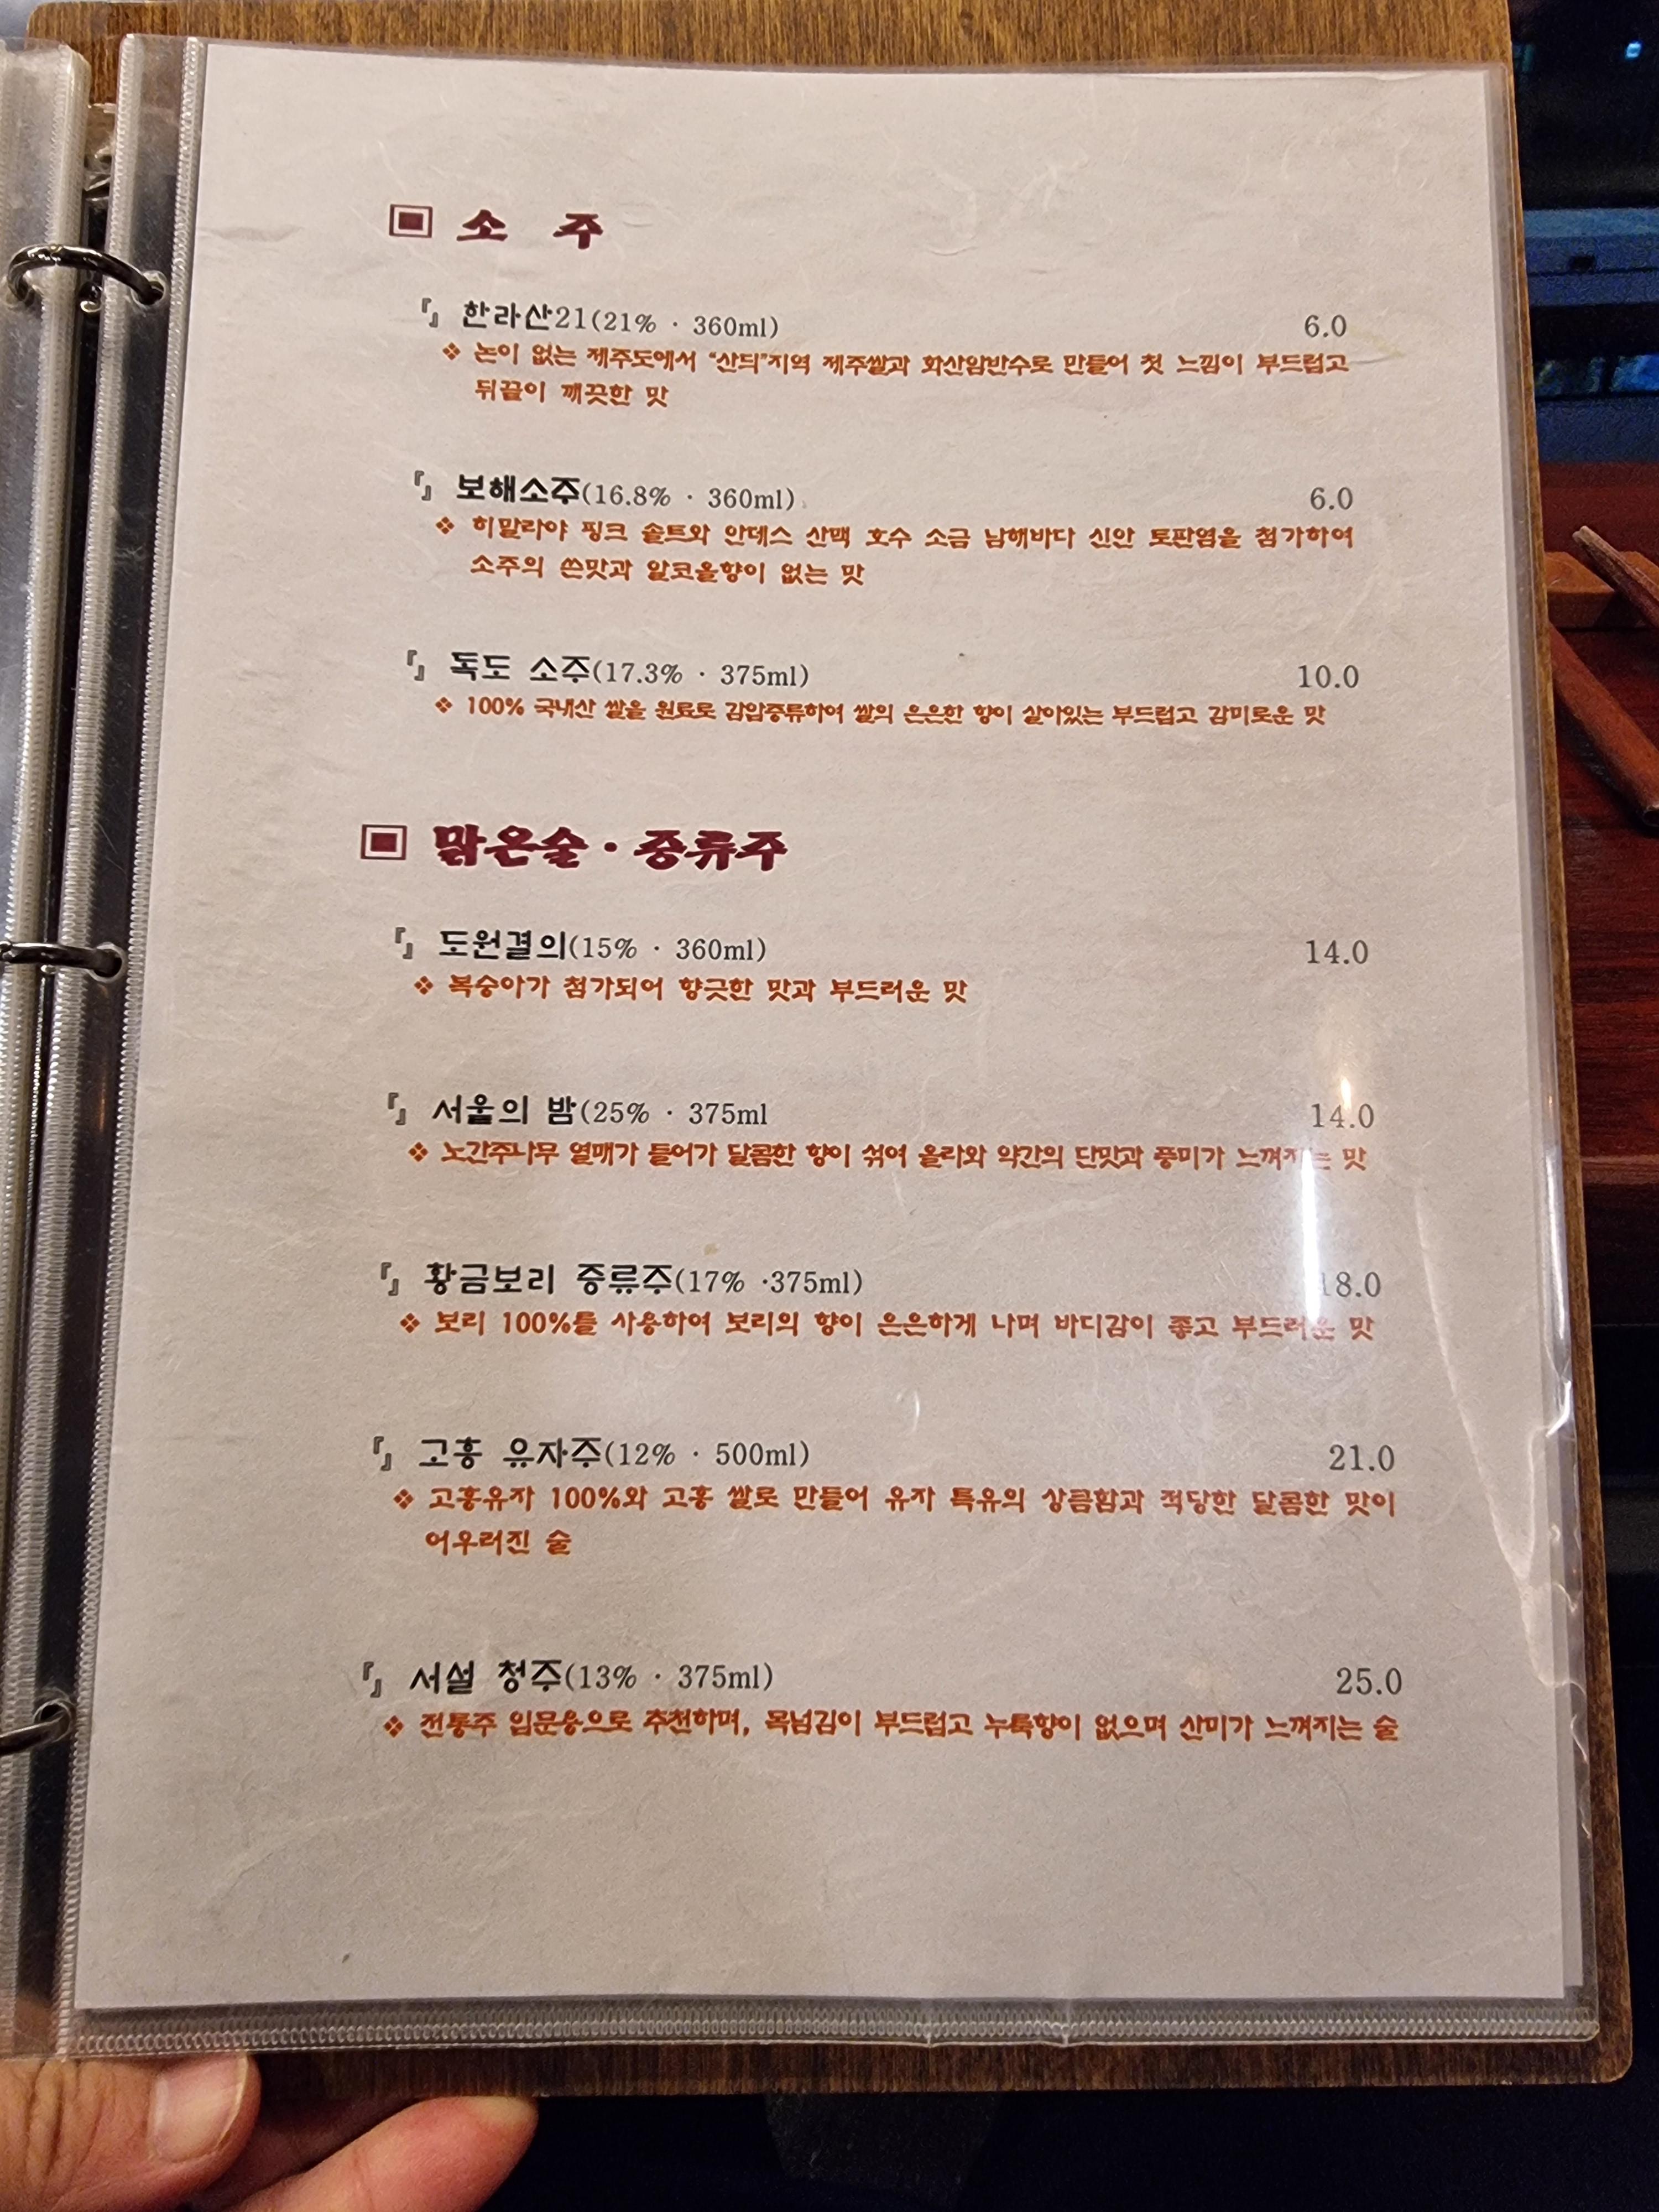 ▣ 소 주
『』 한라산21(21% · 360ml) 6.0
❖ 논이 없는 제주도에서 “산듸”지역 제주쌀과 화산암반수로 만들어 첫 느낌이 부드럽고
뒤끝이 깨끗한 맛
『』 보해소주(16.8% · 360ml) 6.0
❖ 히말라야 핑크 솔트와 안데스 산맥 호수 소금 남해바다 신안 토판염을 첨가하여
소주의 쓴맛과 알코올향이 없는 맛
『』 독도 소주(17.3% · 375ml) 10.0
❖ 100% 국내산 쌀을 원료로 감압증류하여 쌀의 은은한 향이 살아있는 부드럽고 감미로운 맛
▣ 맑은술 · 증류주
『』 도원결의(15% · 360ml) 14.0
❖ 복숭아가 첨가되어 향긋한 맛과 부드러운 맛
『』 서울의 밤(25% · 375ml 14.0
❖ 노간주나무 열매가 들어가 달콤한 향이 섞여 올라와 약간의 단맛과 풍미가 느껴지는 맛
『』 황금보리 증류주(17% ·375ml) 18.0
❖ 보리 100%를 사용하여 보리의 향이 은은하게 나며 바디감이 좋고 부드러운 맛
『』 고흥 유자주(12% · 500ml) 21.0
❖ 고흥유자 100%와 고흥 쌀로 만들어 유자 특유의 상큼함과 적당한 달콤한 맛이
어우러진 술
『』 서설 청주(13% · 375ml) 25.0
❖ 전통주 입문용으로 추천하며, 목넘김이 부드럽고 누룩향이 없으며 산미가 느껴지는 술